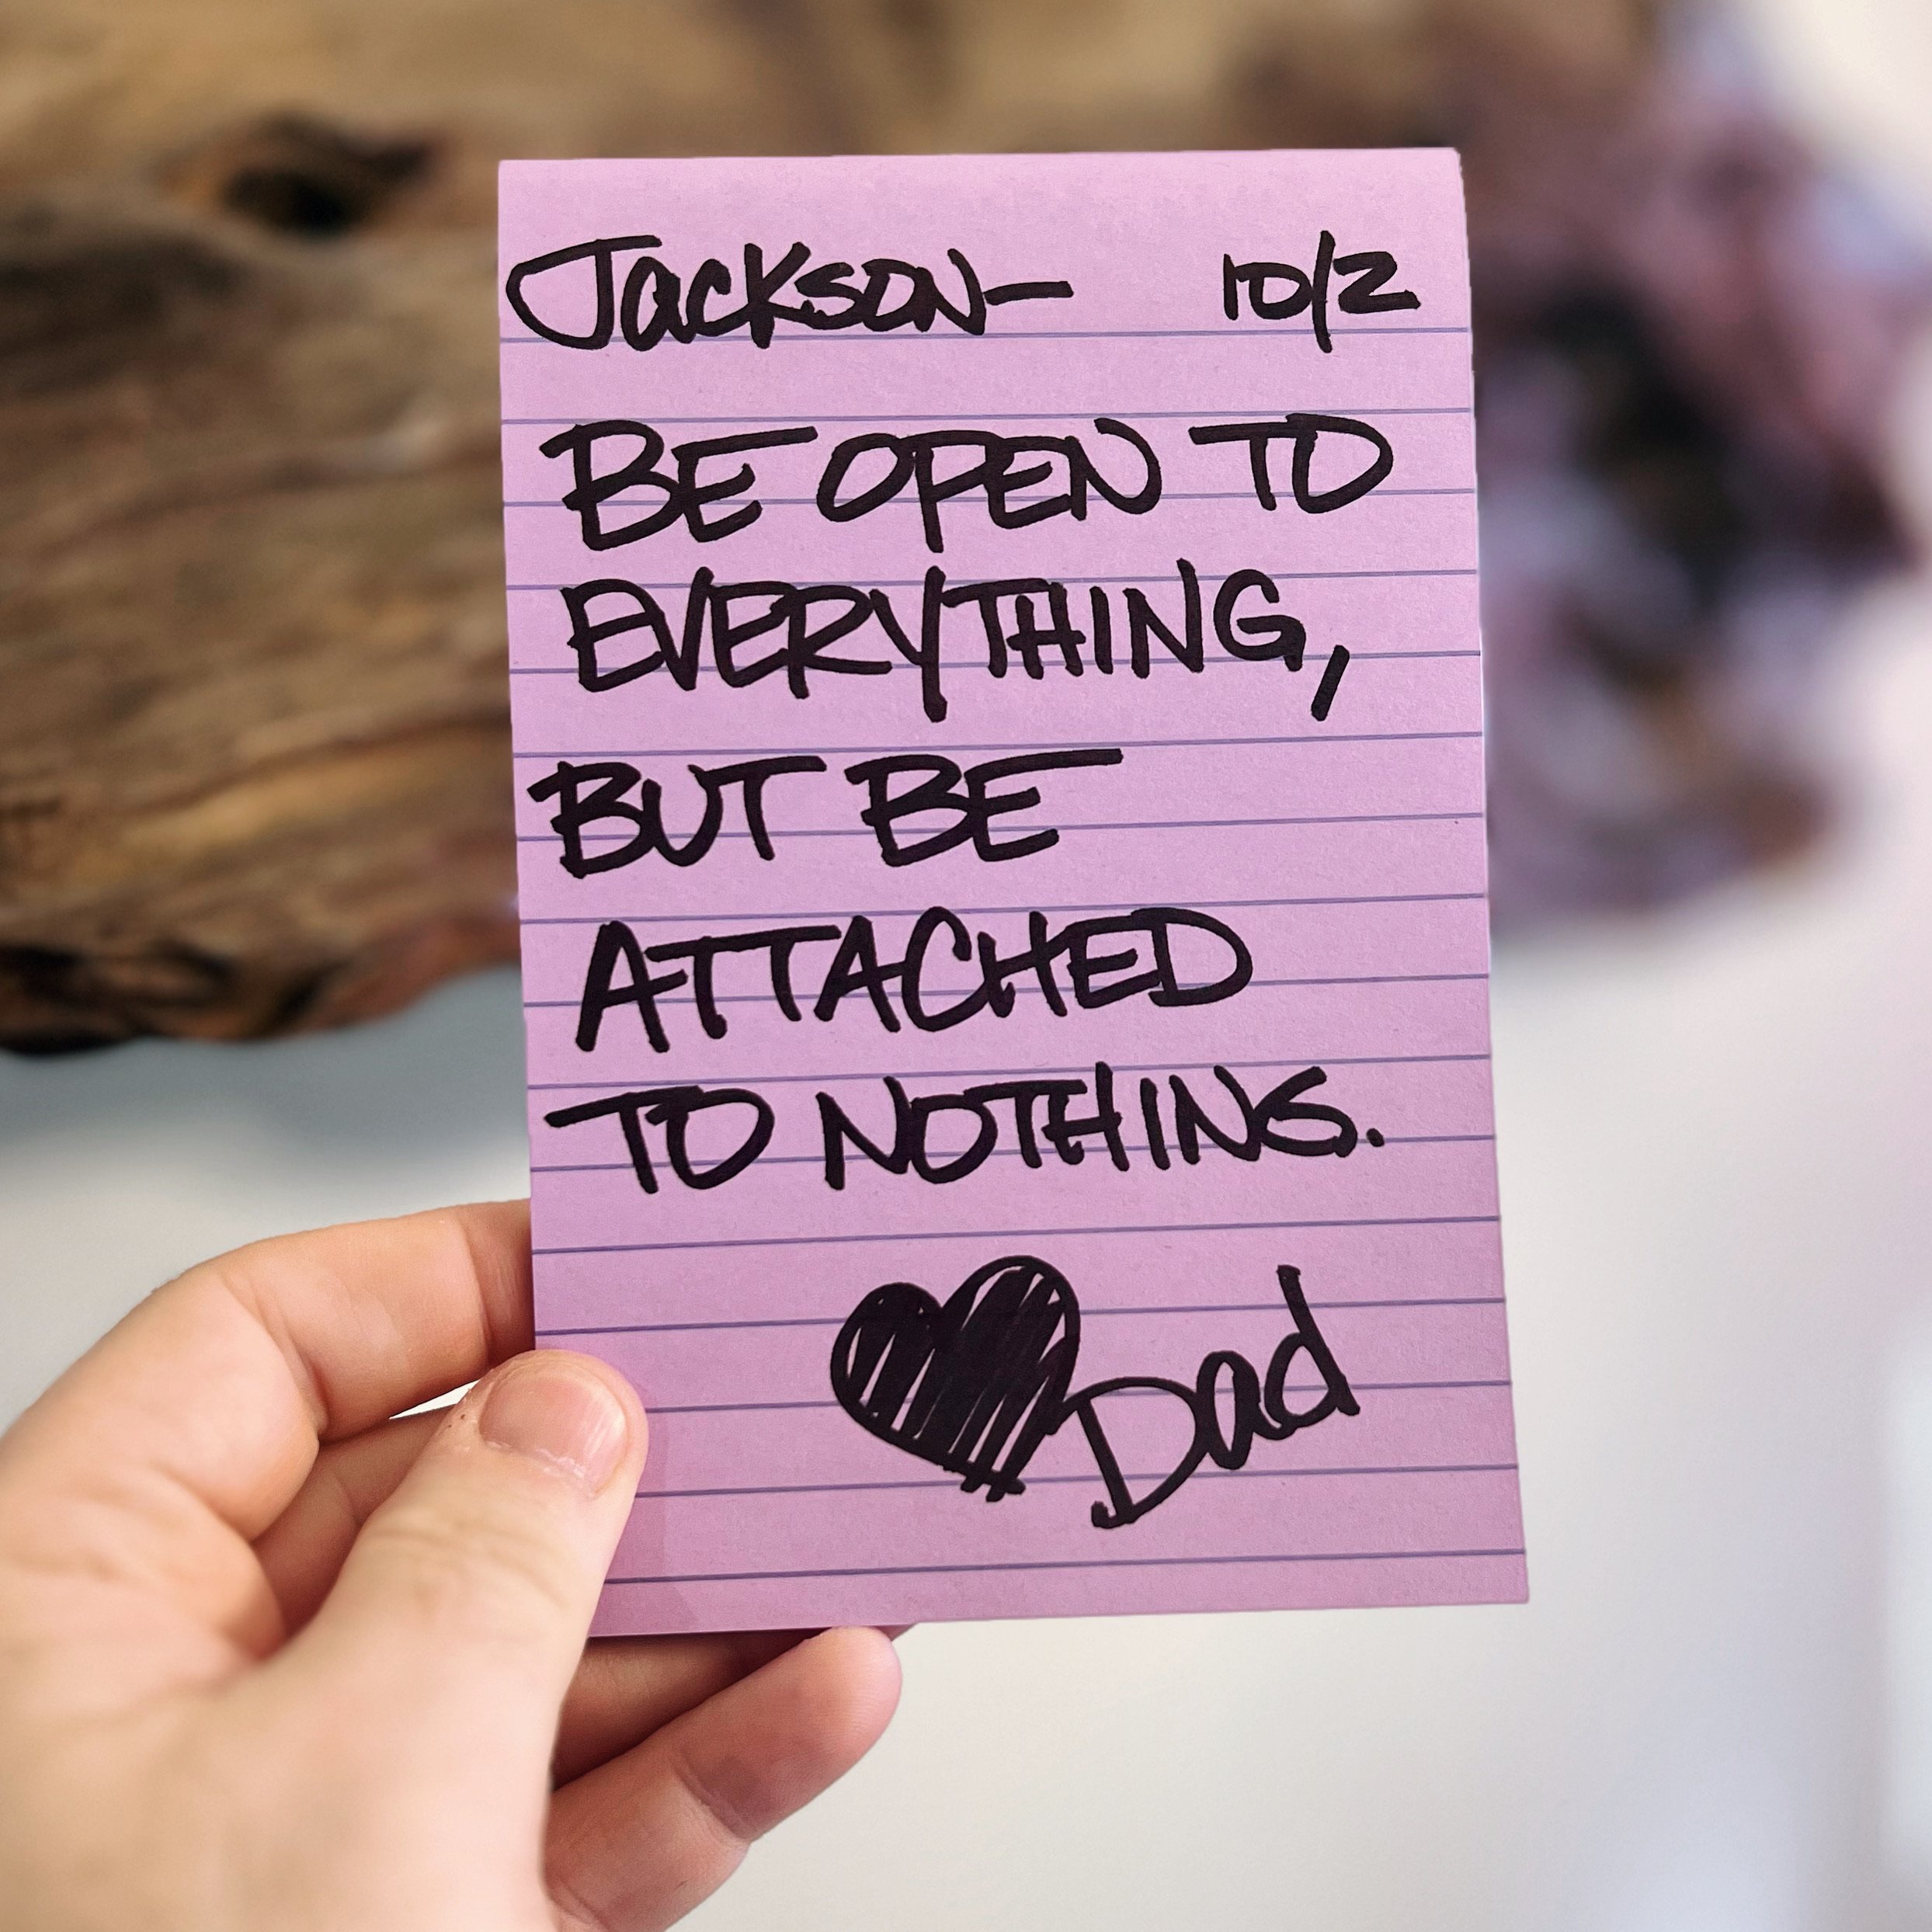 Jackson— 10/2
BE OPEN TO
EVERYTHING,
BUT BE
ATTACHED
TO NOTHING.
Dad